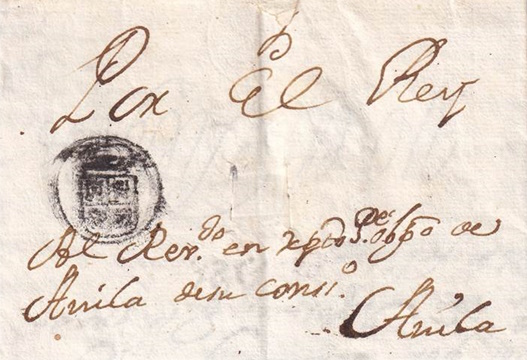 Por El Rey
Al Rev.do en xpto P.e obpo de
Avila de su Conss.o
Avila